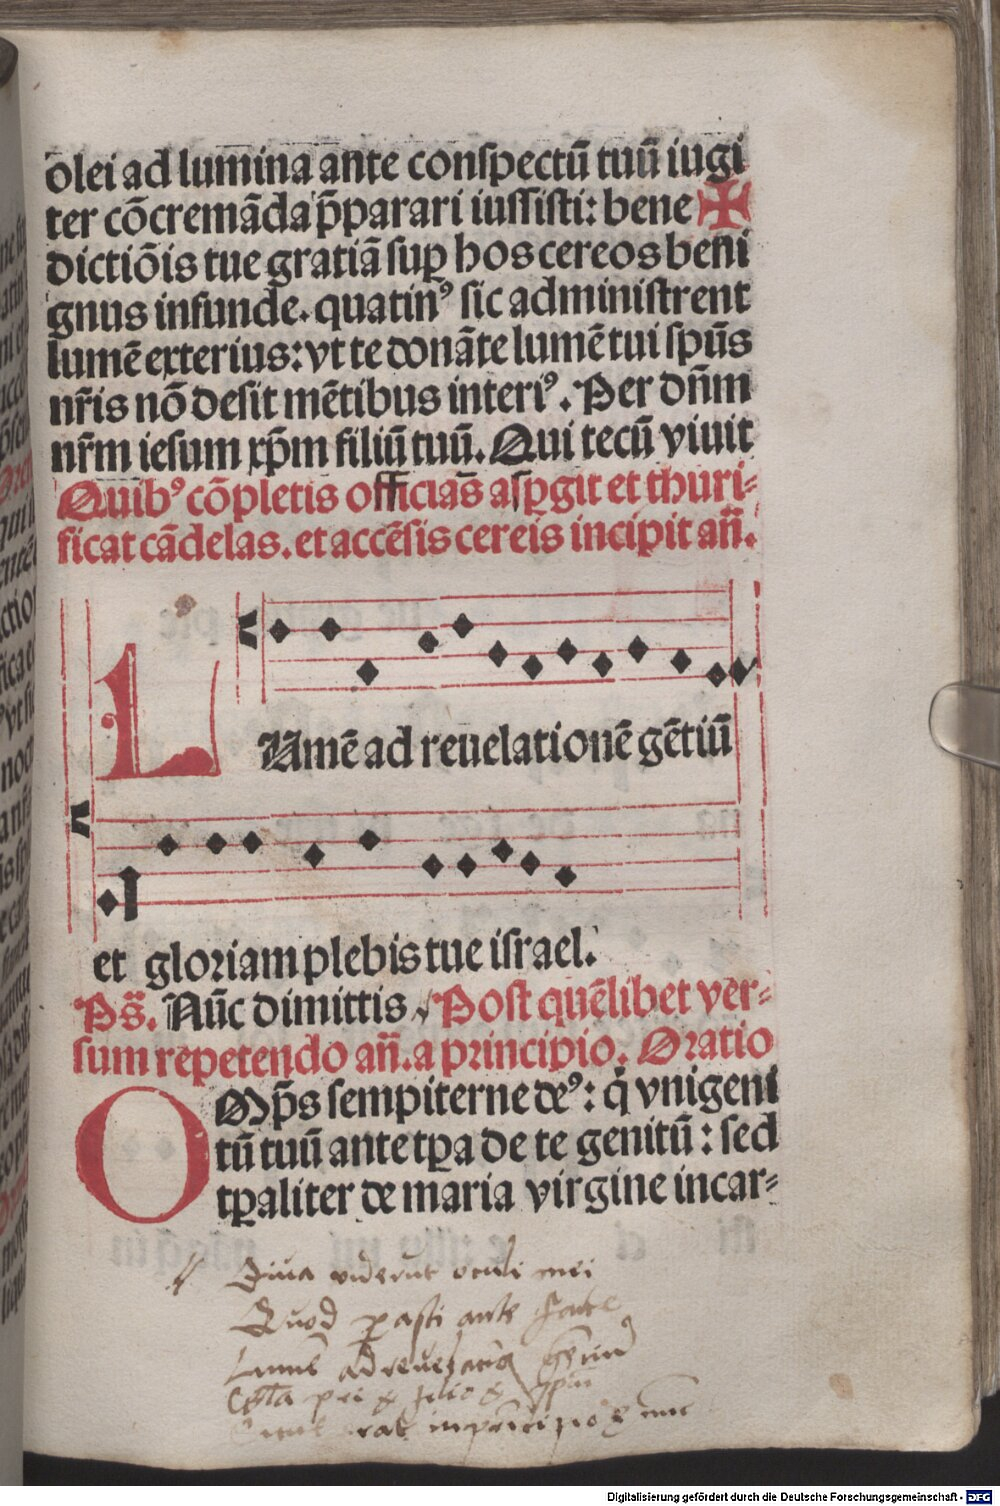 olei ad lumina ante conſpectū tuū iugi
ter cōcremāda p̄parari iuſſiſti: bene ✠
dictiōis tue gratiā ſuꝑ hos cereos beni
gnus infunde. quatinꝰ ſic adminiſtrent
lumē exterius: vt te donāte lumē tui ſpūs
nr̄is nō deſit mētibus interiꝰ. Per dn̄m
nr̄m ieſum xp̄m filiū tuū. Qui tecū viuit
Quibꝰ cōpletis officiās aſꝑgit et thuri⸗
ficat cādelas. et accēſis cereis incipit añ.
LUmē ad reuelationē gētiū
et gloriam plebis tue iſrael.
Ps̄. Nūc dimittis Poſt quēlibet ver⸗
ſum repetendo añ. a principio. Oratio
OOmp̄s ſempiterne deꝰ: q̇ vnigeni
tū tuū ante tꝑa de te genitū: ſed
tꝑaliter de maria virgine incar⸗
Quia viderūt oculi mei
Quod ꝑaſti ante facie
Lumē ad reuelatiōꝫ gētiū
Glīa pri & filio &
Sicut erat in principio & nunc
Digitalisierung gefördert durch die Deutsche Forschungsgemeinschaft - DFG